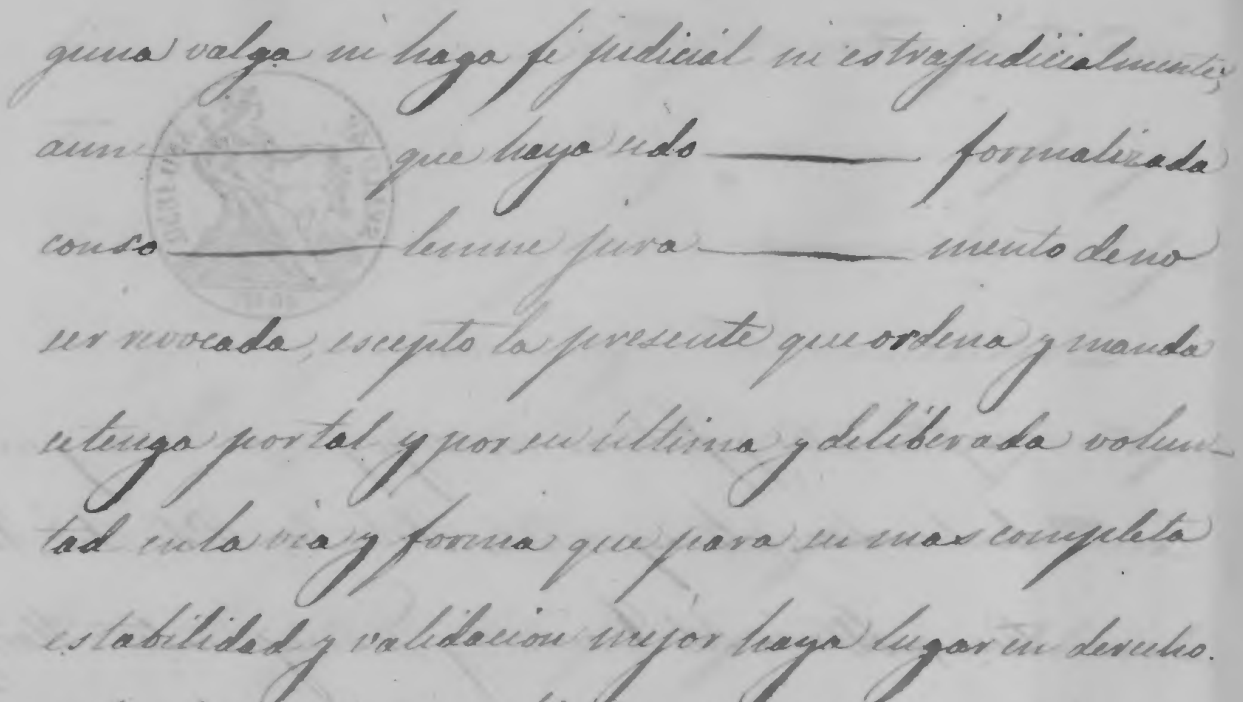 guna valga ni haga fé judicial ni estrajudicialmente,
aun que haya sido formalizada
con so lemne jura mento de no
ser revocada, escepto la presente que ordena y manda
se tenga por tal y por su última y deliberada volun-
tad en la via y forma que para su mas completa
estabilidad y validacion mejor haya lugar en derecho.